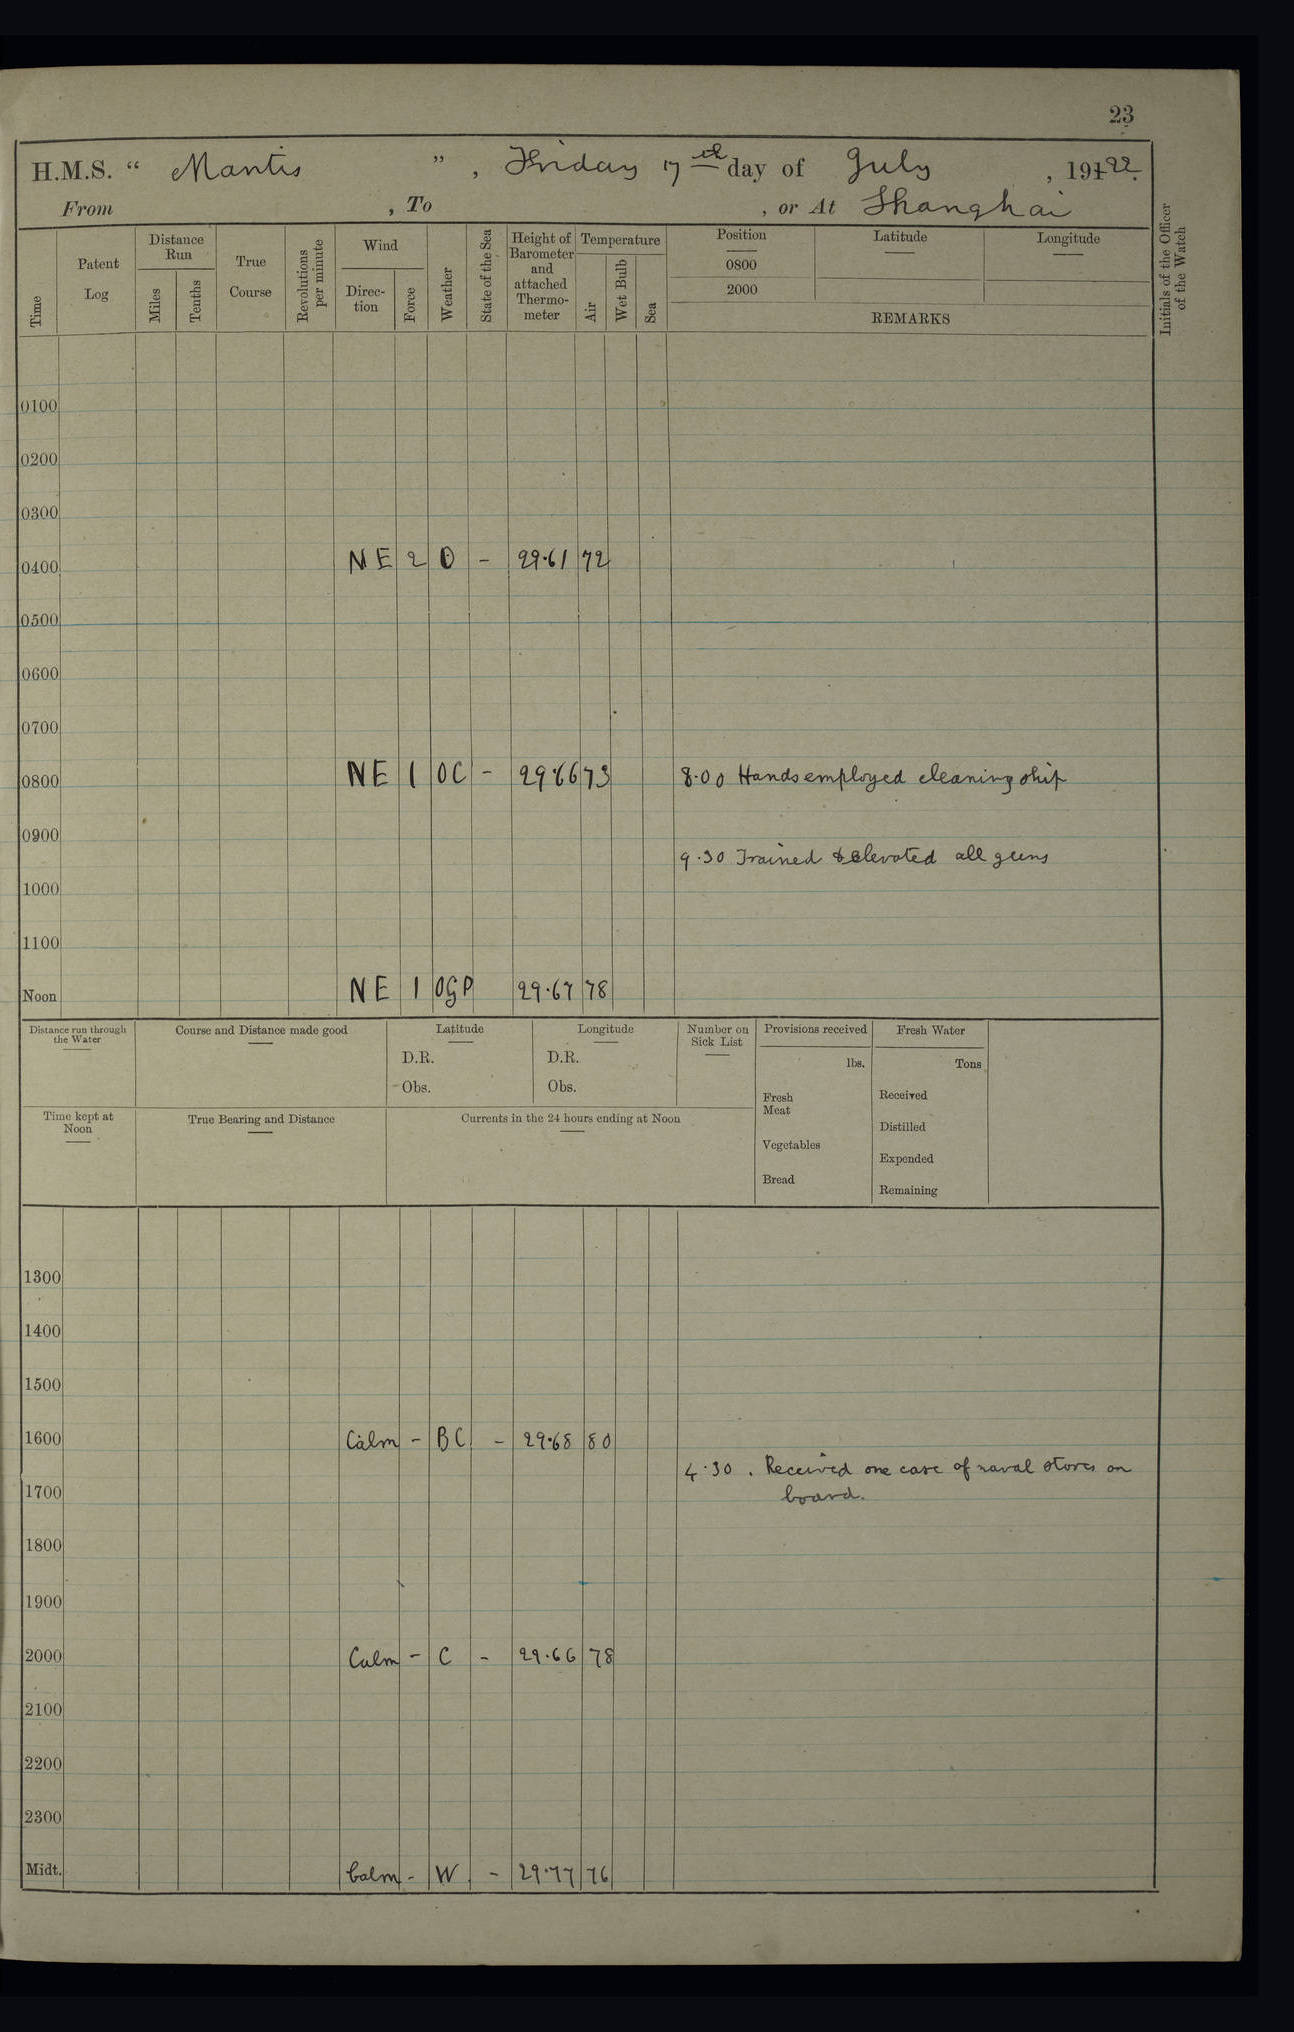 23
H.M.S. “ Mantis ”, Friday 7th day of July, 191 22.
From , To , or At Shanghai
Time
Patent Log
Distance Run
Miles
Tenths
True Course
Revolutions per minute
Wind
Direction
Force
Weather
State of the Sea
Height of Barometer and attached Thermometer
Temperature
Air
Wet Bulb
Sea
Position
0800
2000
Latitude
Longitude
REMARKS
Initials of the Officer of the Watch
0100
0200
0300
0400 NE 2 O - 29.61 72
0500
0600
0700
0800 NE 1 OC - 29.66 73 8.00 Hands employed cleaning ship
0900
9.30 Trained & elevated all guns
1000
1100
Noon NE 1 OGP 29.67 78
Distance run through the Water
Course and Distance made good
Latitude
D.R.
Obs.
Longitude
D.R.
Obs.
Number on Sick List
Provisions received
lbs.
Fresh Meat
Vegetables
Bread
Fresh Water
Tons
Received
Distilled
Expended
Remaining
Time kept at Noon
True Bearing and Distance
Currents in the 24 hours ending at Noon
1300
1400
1500
1600 Calm - BC - 29.68 80
4.30. Received one case of naval stores on
board.
1700
1800
1900
2000 Calm - C - 29.66 78
2100
2200
2300
Midt. Calm - W - 29.77 76